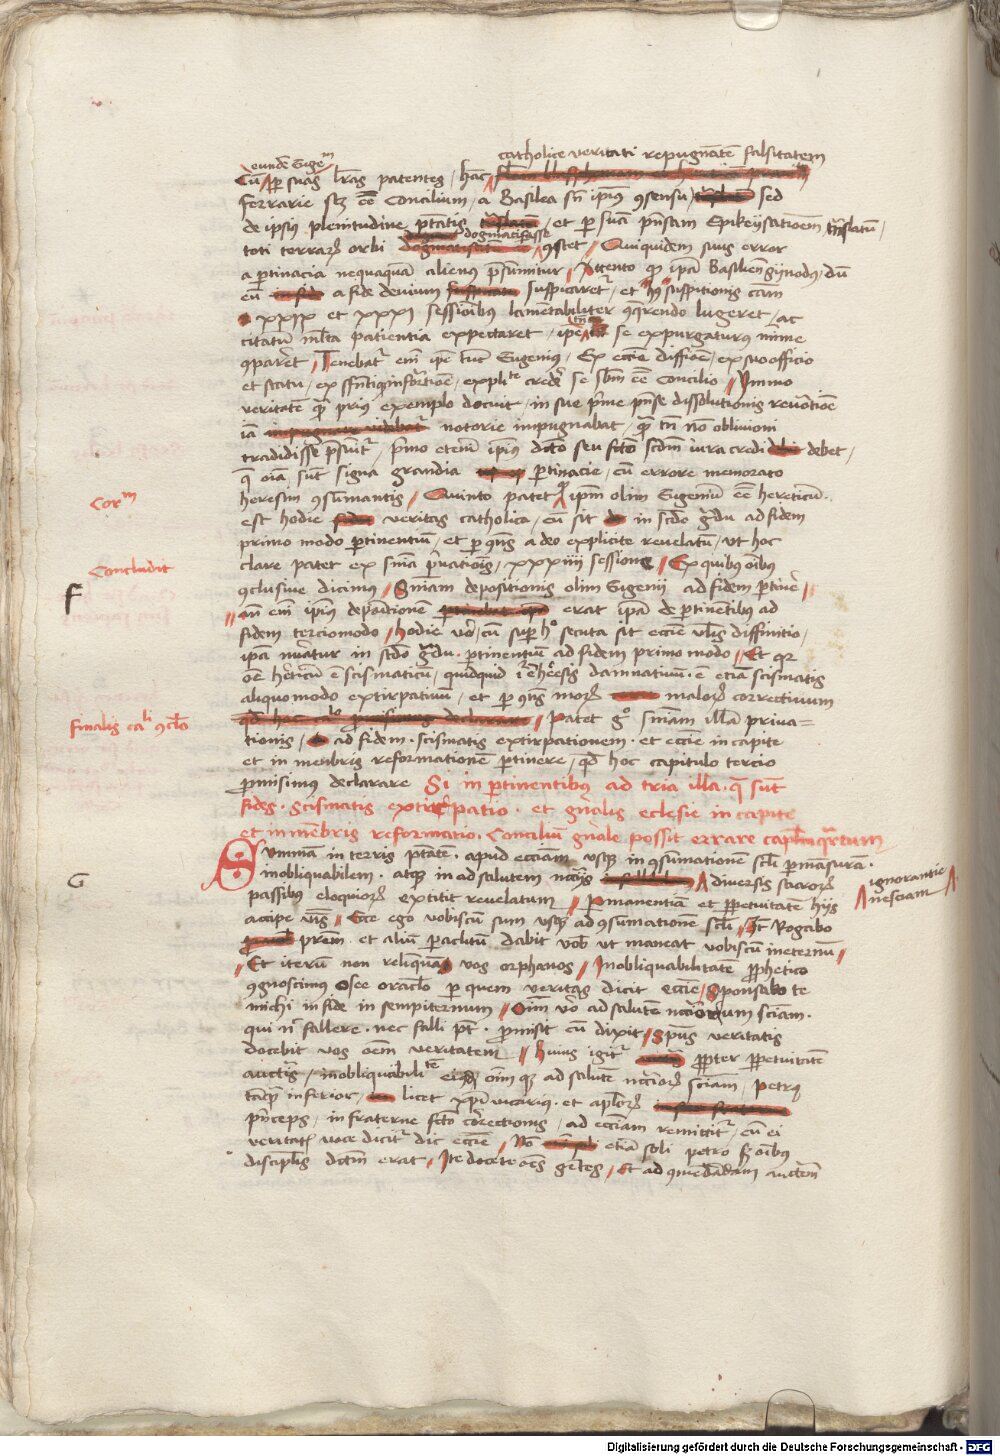 catholice veritati repugnatē falsitatem
eundē Eugem
Cū per suas lrās patentes / hāc
ferrarie scz eē Concilium / a Basilea sn̄ ipiꝰ ꝯsensu sed
de ipsiꝰ plenitudine ptātis / et ꝑ suā pn̄sam Epikeysatioem trāslatū /
dogmatisasse
toti terrarꝝ orbi ꝯstet / Quiquidem suus error
a ꝑtinacia nequaquā alienus p̄sumitur / Attento ꝙ ipā Basilien̄ synodꝰ dū
eū a fide devium suspicaretꝛ / et hꝰ suspitionis cām
xxix et xxxi sessionibus lamentabiliter ꝯquerendo lugeret / ac
citatū mlta patientia expectaret / ipe tn̄ se expurgaturus mīme
ꝯparēt / Tenebatꝛ em̄ ipe tūc Eugenius / Ex eccīe diffīoe / ex suo officio
et statu / explite credeꝛ se sbm eē Concilio / Immo
veritatē quā prius exemplo docuit / in sue prime pn̄se dissolutionis revōtioē
iā notorie impugnabat / quā tn̄ nō oblivioni
tradidisse p̄sūitꝛ / primo etenim ipiꝰ dcto seu fcto scdm iura credi debet /
q̄ oīa sūt signa grandia ꝑtinacie / cū errore memorato
heresim ꝯsūmantis / Quinto patet ꝙ ipm olim Eugeniū eē hereticū
est hodie veritas catholica / cū sit in scdo gdu ad fidem
primo modo ꝑtinentiū / et ꝑ ꝯns a deo explicite revelatū / ut hoc
clare patet ex snīa privationis / xxxiiii sessionis / Ex quibus oībus
ꝯclusive dicimus / Snīam depositionis olim Eugenii ad fidem ꝑtinēꝛ
an̄ em̄ ipius depōitionē erat ipā de ꝑtinētibus ad
fidem tercio modo / hodie vo / cū suꝑ hº secuta sit eccīe vlis diffinitio /
ipā nūatur in scdo gdu ꝑtinentium ad fidem primo modo / Et qꝛ
oē hereticū ē scismaticū / quidquid ī heresis damnatiuū ē etiā scismatis
aliquo modo extirpatiuū / et ꝑ ꝯns morꝝ malorꝝ correctiuum
/ Patet gº snīam illā priva=
tionis / ad fidem scismatis extirpationem et eccīe in capite
et in menbris reformationē ꝑtinere / qd hoc capitulo tercio
p̄misimus declarare Si in ꝑtinentibus ad tria illa q̄ sūt
fides scismatis extirpatio et gn̄alis eclesie in capite
et in mēbris reformatio Conciliū gn̄ale possit errare caplm qrtum
Summā in terris ptātē apud ecciam usqꝫ in ꝯsumationē scli ꝑmāsurā
inobliquabilem atqꝫ in ad salutem nccīis diversis sacrorꝝ
passibus eloquiorꝝ extitit revelatum / Permanentiā et ꝑpetuitatē hijs
accipe / Ecce ego vobiscū sum usqꝫ ad ꝯsumationē scli / Et Rogabo
prem et aliū paclitū dabit vob ut maneat vobiscū in eternū /
Et iterū non relinquā vos orphanos / Inobliquabilitatē prophetico
ꝯgnoscimus Osee oraclo per quem veritas dicit eccīe / Sponsabo te
michi in fide in sempiternum / Oīm vo ad salutē nccīorum sciam
qui n̄ fallere nec falli pt ꝓmisit cū dixit / Spūs veritatis
docebit vos oēm veritatem / Huius igitꝛ propter ꝑpetuitatē
inobliquabilitatē oīm qꝫ ad salutē nccīorꝝ sciam / Petrus
tāqꝫ inferior / licet xpi vicarius et aplorꝝ
princeps / in fraterne fcto correctionis / ad ecciam remittitꝛ / cū ei
veritatis voce dicitꝛ dic eccīe / Nō etiā soli petro sꝫ oībus
disciplis dctm erat / Ite docete oēs gētes / Et ad ꝯmēdādam auctem
Corm
Concludit
F
Finalis cali ꝯclō
G
ignorantie
nesciam
Digitalisierung gefördert durch die Deutsche Forschungsgemeinschaft - DFG